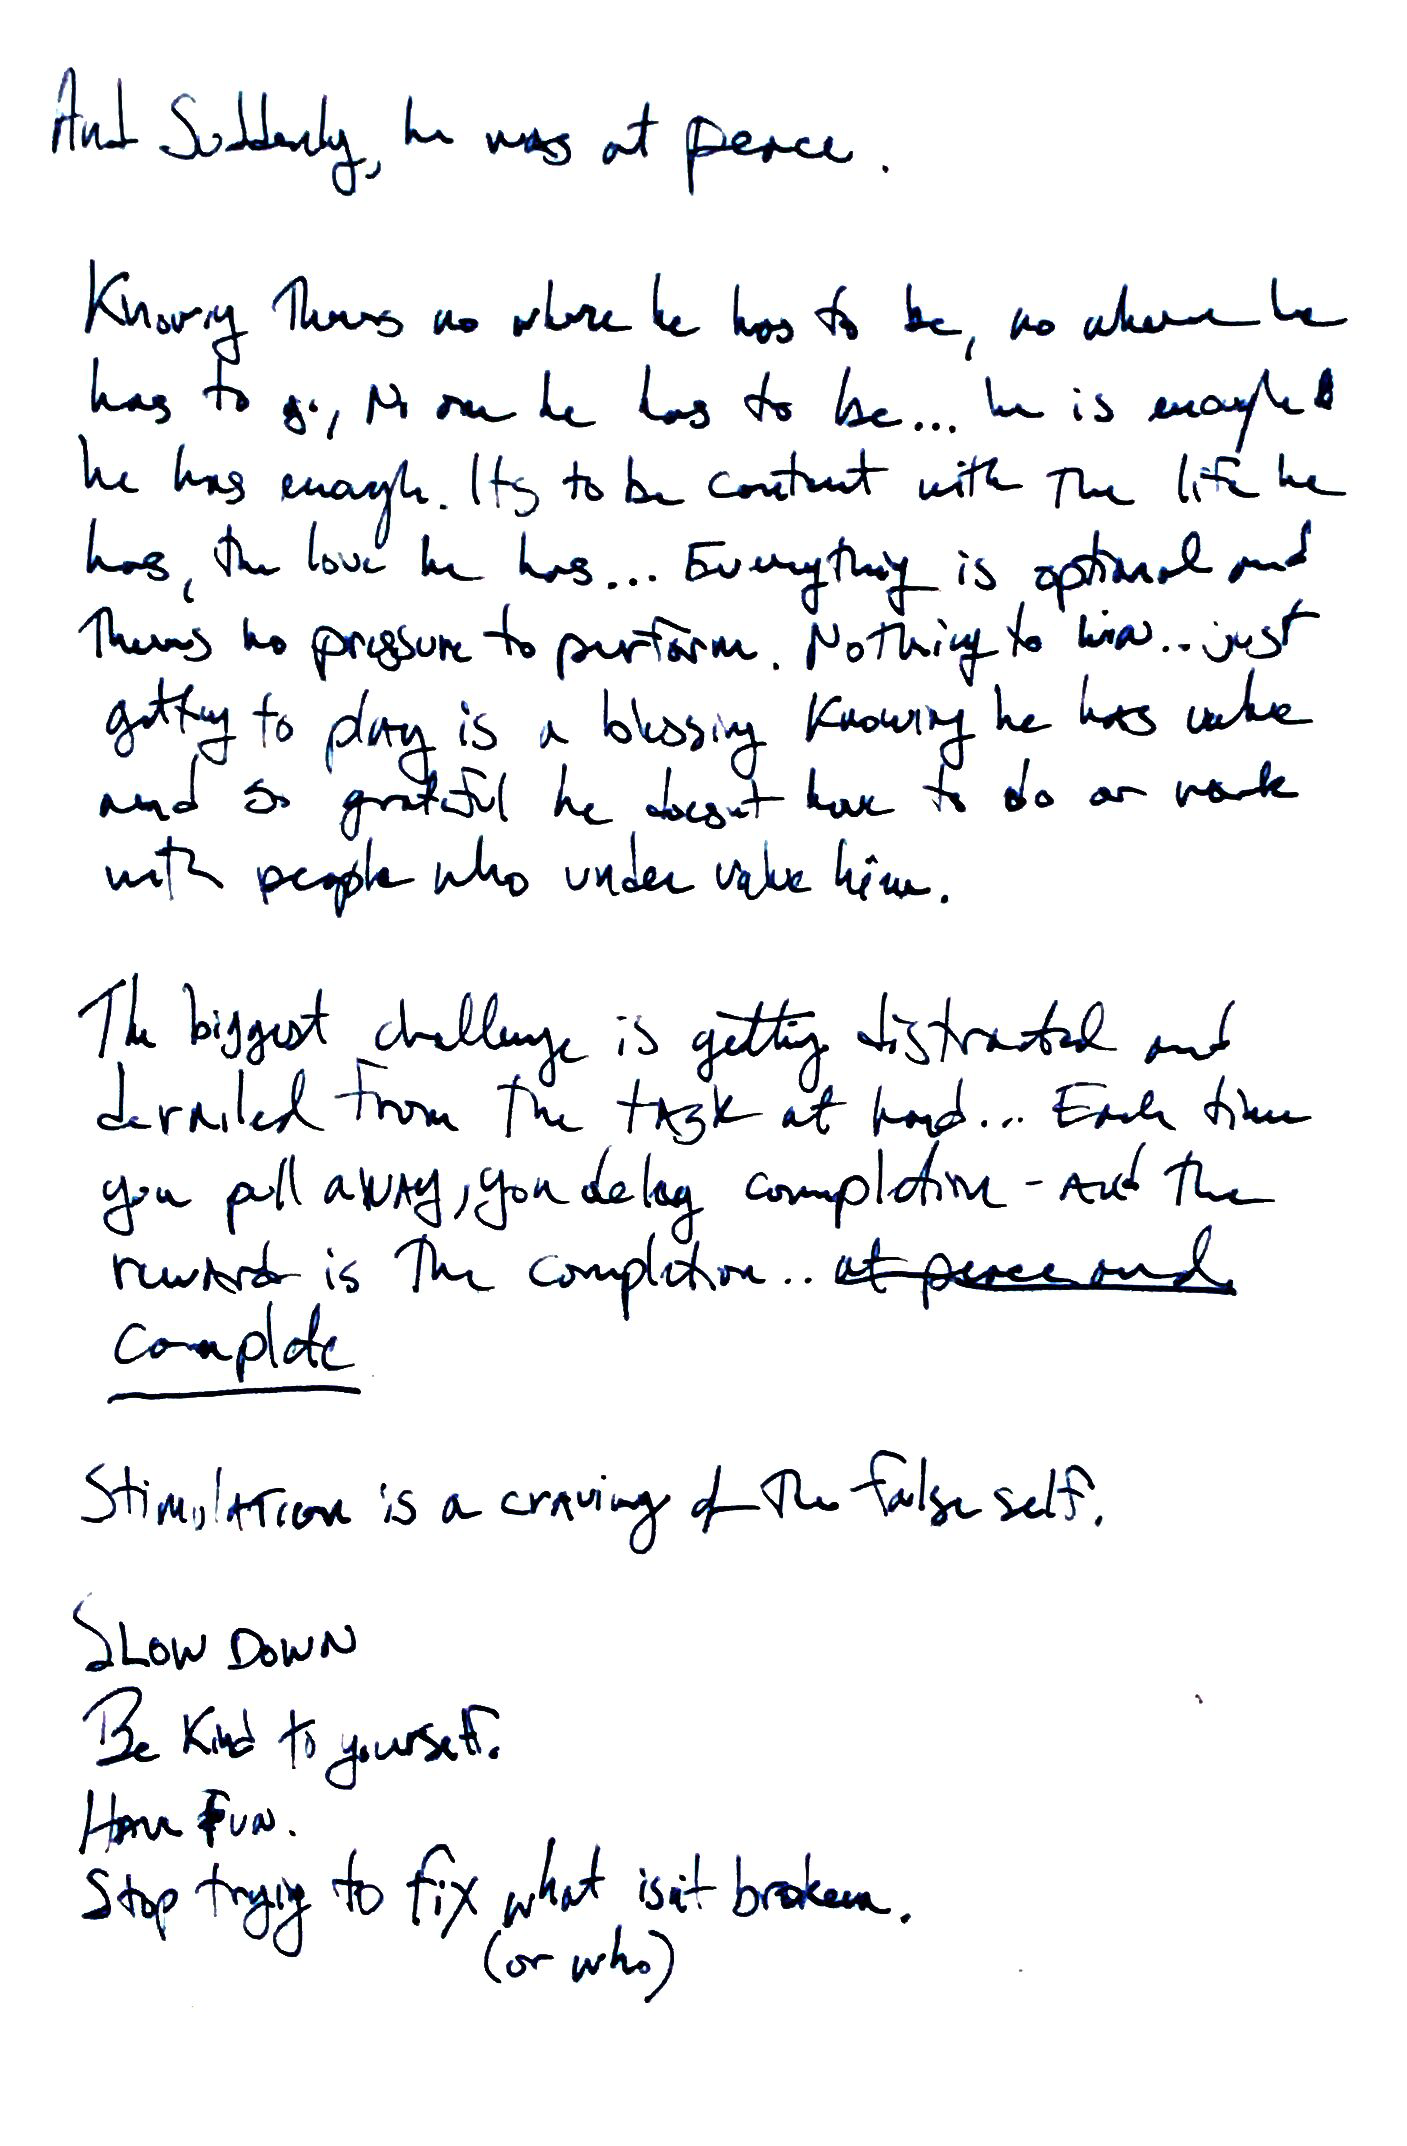 And Suddenly, he was at peace.
Knowing Theres no where he has to be, no where he
has to go, No one he has to be... he is enough &
he has enough. Its to be content with The life he
has, the love he has... Everything is optional and
Theres no pressure to perform. Nothing to win.. just
getting to play is a blessing Knowing he has value
and so grateful he doesnt have to do or work
with people who under value him.
The biggest challenge is getting distracted and
derailed from The task at hand... Each time
you pull away, you delay completion - And The
reward is The completion.. at peace and
complete
Stimulation is a craving of The false self.
SLOW DOWN
Be Kind to yourself.
Have Fun.
Stop trying to fix what isn't broken.
(or who)